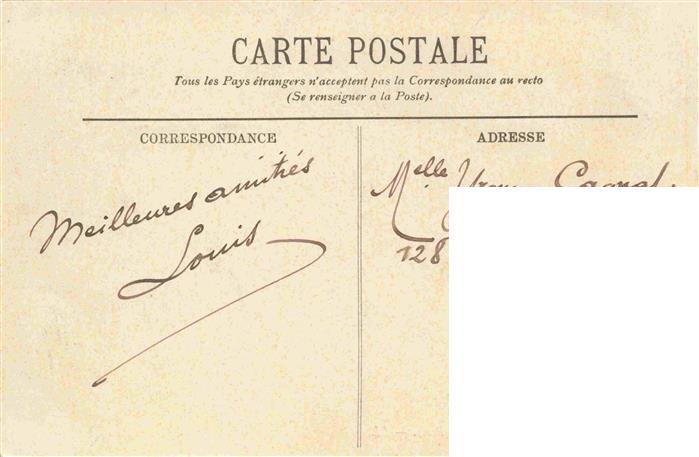 CARTE POSTALE
Tous les Pays étrangers n'acceptent pas la Correspondance au recto
(Se renseigner a la Poste).
CORRESPONDANCE
Meilleures amitiés
Louis
ADRESSE
Melle
128